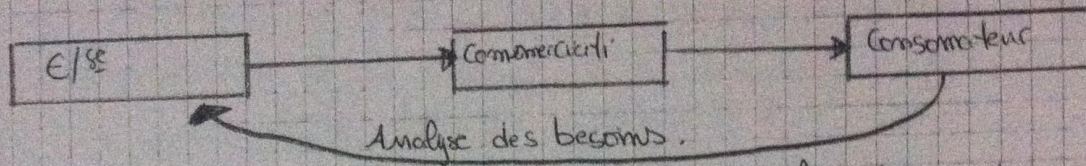 E/se
Commerciali
Consomateur
Analyse des besoins.